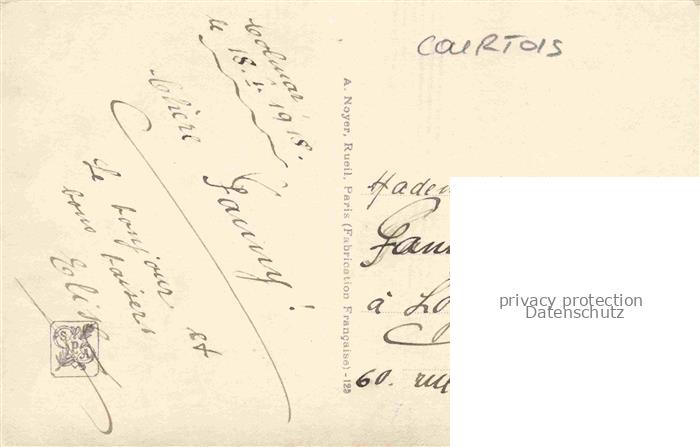 COURTOIS
Colmar
le 18.V.1918.
Chère
Fanny!
Le bonjour et
bons baisers
Elis
A. Noyer, Rueil, Paris (Fabrication Française) - 129
Madem
Fan
à Lo
60. rue
privacy protection
Datenschutz